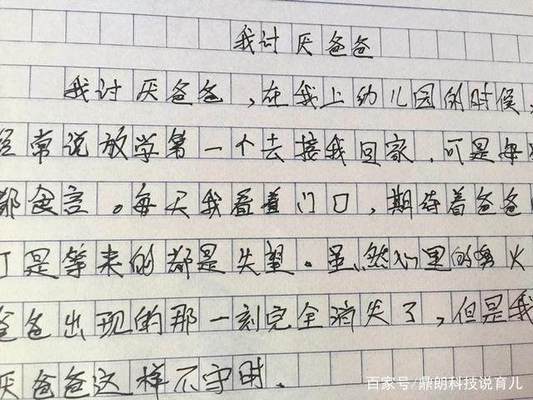 我讨厌爸爸
我讨厌爸爸，在我上幼儿园的时候，
经常说放学第一个去接我回家，可是每
都食言。每天我看着门口，期待着爸爸
可是等来的都是失望。虽然心里的火
爸爸出现的那一刻完全消失了，但是我
厌爸爸这样不守时。
百家号/鼎朗科技说育儿